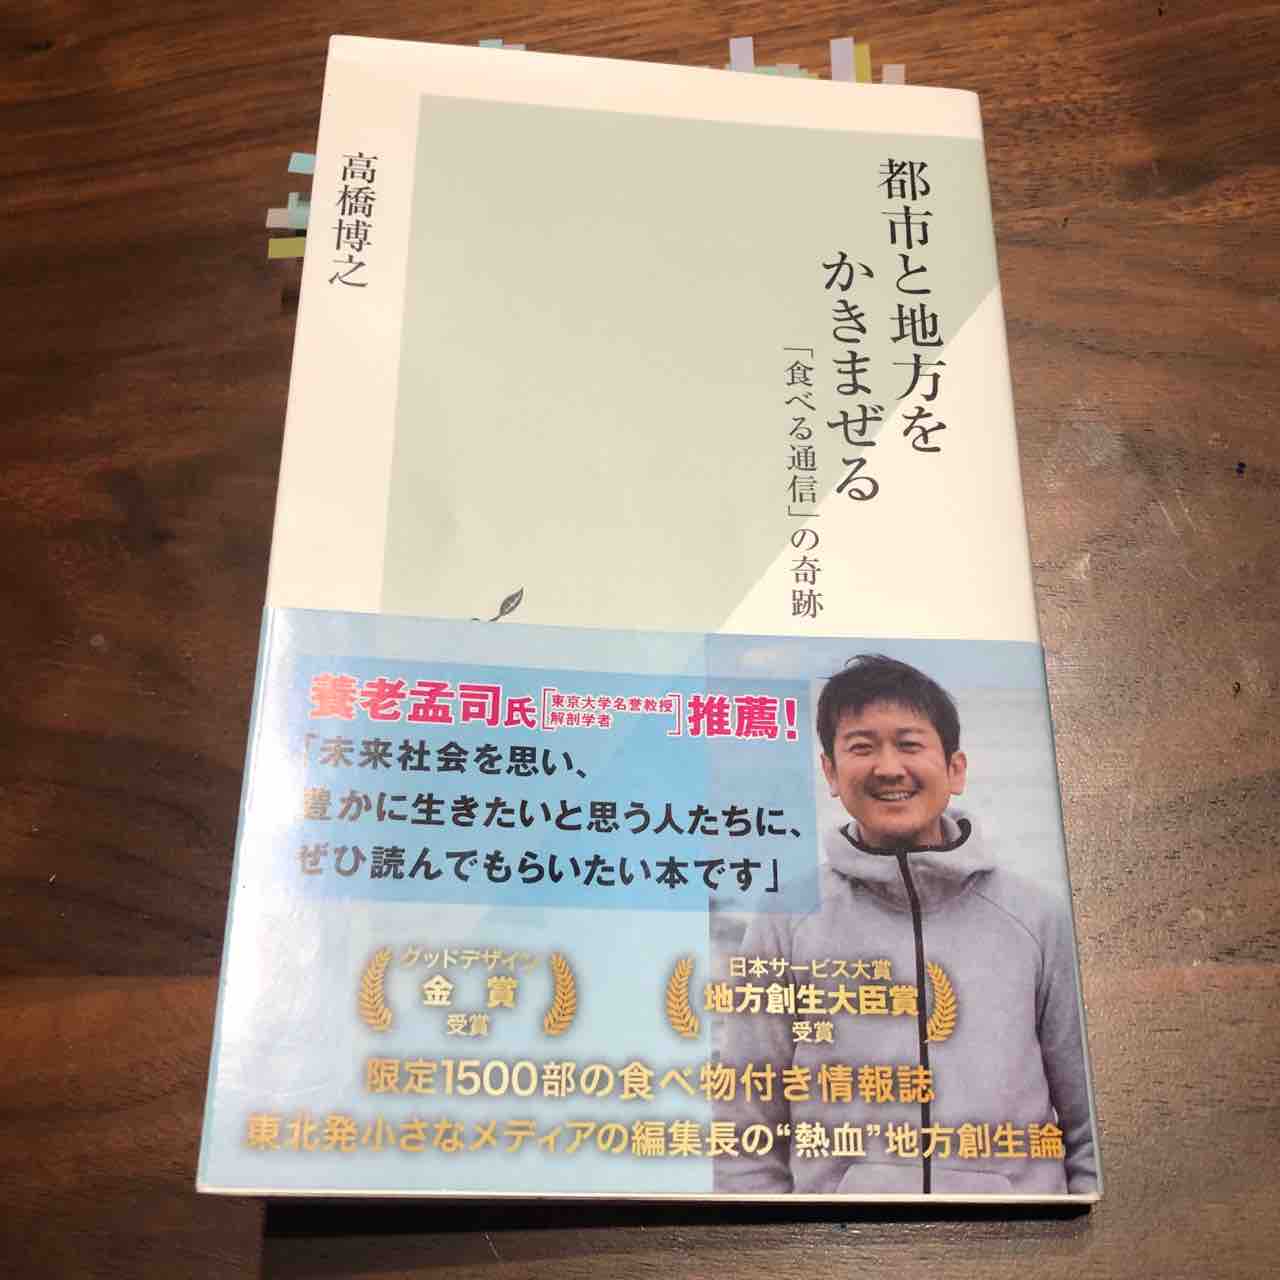 都市と地方を
かきまぜる
「食べる通信」の奇跡
高橋博之
養老孟司氏[東京大学名誉教授
解剖学者]推薦!
「未来社会を思い、
豊かに生きたいと思う人たちに、
ぜひ読んでもらいたい本です」
グッドデザイン
金賞
受賞
日本サービス大賞
地方創生大臣賞
受賞
限定1500部の食べ物付き情報誌
東北発小さなメディアの編集長の“熱血”地方創生論